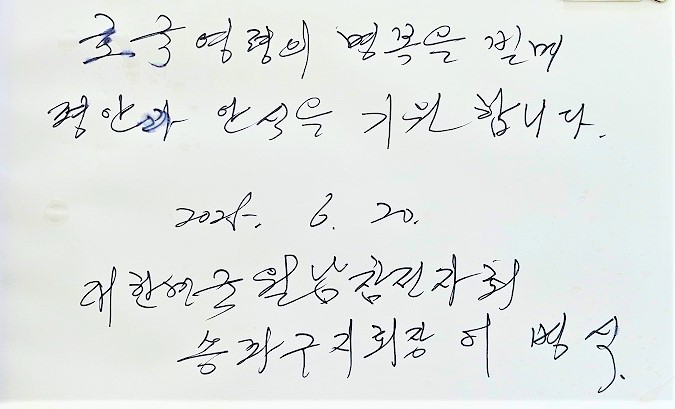 호국영령의 명복을 빌며
평안과 안식을 기원합니다.
2025. 6. 20.
대한민국월남참전자회
송파구지회장 이 병 석.